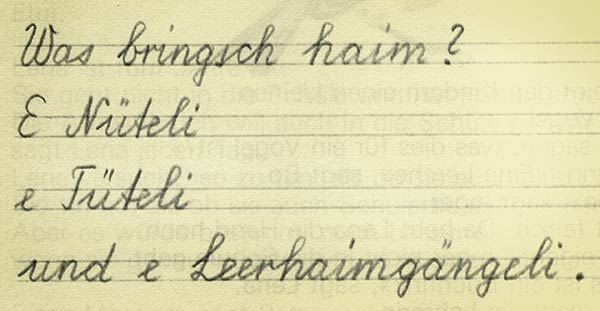 Was bringsch haim?
E Nüteli
e Tüteli
und e Leerhaimgängeli.